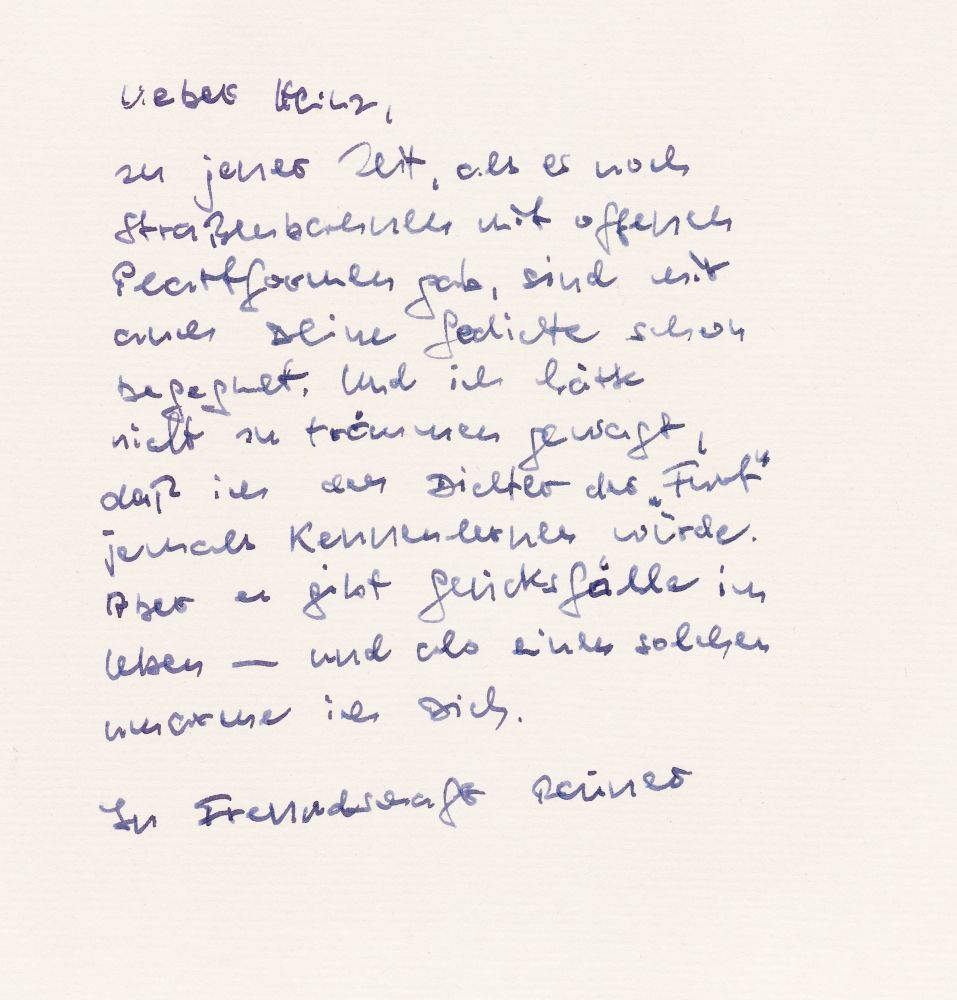 Lieber Heinz,
zu jener Zeit, als es noch
Straßenbahnen mit offenen
Plattformen gab, sind mir
auch Deine Gedichte schon
begegnet. Und ich hätte
nicht zu träumen gewagt,
daß ich den Dichter der
jemals kennenlernen würde.
Aber es gibt Glücksfälle im
Leben — und als einen solchen
umarme ich Dich.
In Freundschaft Rainer